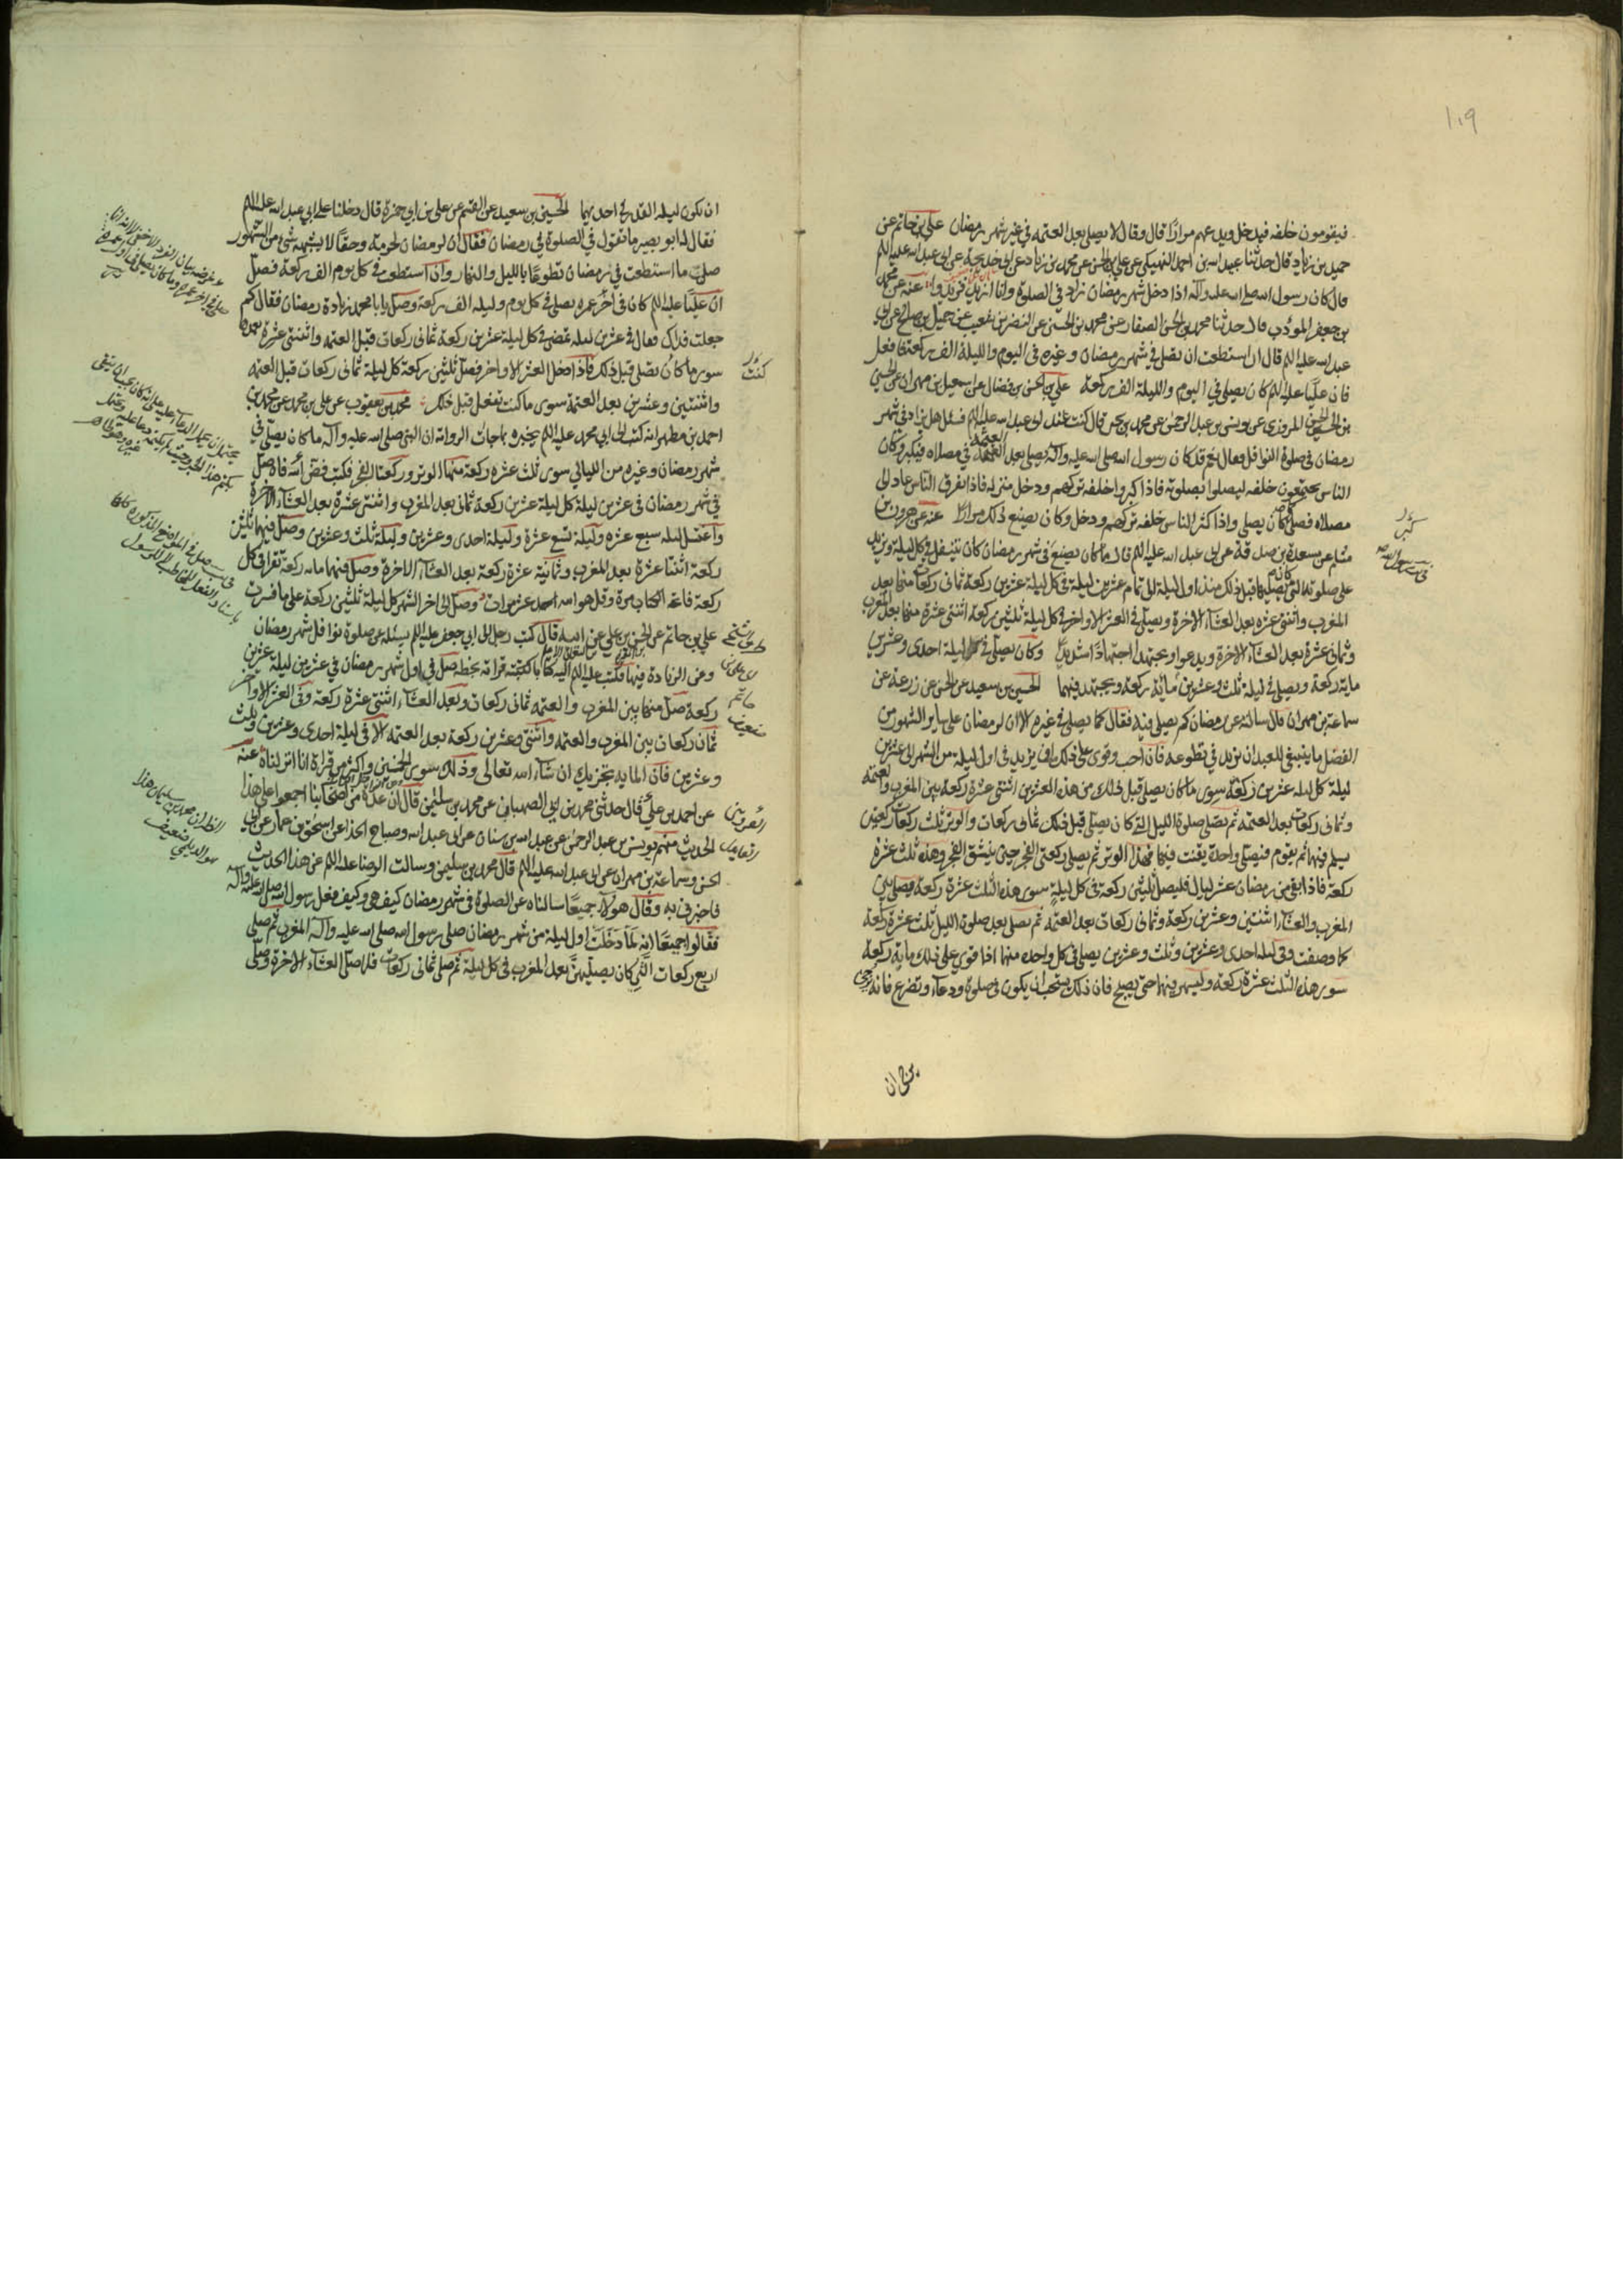 ١٠٩
فيقومون خلفه فيدخل ويدعهم مرارًا قال وقال لا يصلى بعد العتمة في غير شهر رمضان علي بن حاتم عن
حميد بن زياد قال حدثنا عبيد الله بن احمد النهيكي عن علي بن الحسن عن محمد بن زياد عن ابي خديجة عن ابي عبد الله عليه السلم
قال كان رسول الله صلى الله عليه وآله اذا دخل شهر رمضان زاد في الصلوة وانا ازيد فزيدوا عنه عن محمد
بن جعفر المؤدب قال حدثنا محمد بن الحسن الصفار عن محمد بن الحسين عن النضر بن شعيب عن جميل بن صالح عن ابي
عبد الله عليه السلم قال ان استطعت ان تصلى في شهر رمضان وغيره في اليوم والليلة الف ركعة فافعل
فان عليًا عليه السلم كان يصلي في اليوم والليلة الف ركعة علي بن الحسن بن فضال عن اسمعيل بن مهران عن الحسن
بن الحسين المروزي عن يونس بن عبد الرحمن عن محمد بن يحيى قال كنت عند ابي عبد الله عليه السلم فسئل هل يزاد في شهر
رمضان في صلوة النوافل فقال نعم قد كان رسول الله صلى الله عليه وآله يصلى بعد العتمة في مصلاه فيكبر وكان
الناس يجتمعون خلفه ليصلوا بصلوته فاذا كبروا خلفه تركهم ودخل منزله فاذا تفرق الناس عاد الى
مصلاه فصلى كما كان يصلى واذا كثر الناس خلفه تركهم ودخل وكان يصنع ذلك مرارًا عنه عن هرون بن
مسلم عن مسعدة بن صدقة عن ابي عبد الله عليه السلم قال مما كان يصنع في شهر رمضان كان يتنفل في كل ليلة ويزيد
على صلوته التي كان يصليها قبل ذلك منذ اول ليلة الى تمام عشرين ليلة في كل ليلة عشرين ركعة ثماني ركعات منها بعد
المغرب واثنتي عشره بعد العشاء الآخرة ويصلي في العشر الاواخر في كل ليلة ثلثين ركعة اثنتى عشرة منها بعد المغرب
وثماني عشرة بعد العشاء الآخرة ويدعوا ويجتهد اجتهادًا شديدًا وكان يصلي في كل ليلة احدى وعشرين
ماية ركعة ويصلى في ليلة ثلث وعشرين مائة ركعة ويجتهد فيهما الحسين بن سعيد عن الحسن عن زرعة عن
سماعة بن مهران قال سألته عن رمضان كم يصلى فيه فقال كما يصلى في غيره الا ان لرمضان على ساير الشهور من
الفضل ما ينبغي للعبد ان يزيد في تطوعه فان احب وقوى على ذلك ان يزيد في اول ليلة من الشهر الى عشرين
ليلة كل ليلة عشرين ركعة سوى ما كان يصلي قبل ذلك من هذه العشرين اثنتى عشرة ركعة بين المغرب والعتمة
وثماني ركعات بعد العتمة ثم يصلى صلوة الليل التي كان يصلى قبل ذلك ثماني ركعات والوتر ثلث ركعات ركعتين
يسلم فيهما ثم يقوم فيصلى واحدة يقنت فيها فهذا الوتر ثم يصلى ركعتى الفجر حين ينشق الفجر وهذه ثلث عشرة
ركعة فاذا بقي من رمضان عشر ليال فليصل ثلثين ركعة في كل ليلة سوى هذه الثلث عشرة ركعة يصلى بين
المغرب والعشاء اثنتين وعشرين ركعة وثماني ركعات بعد العتمة ثم يصلى بعد صلوة الليل ثلث عشرة ركعة
كما وصفت وفي ليلة احدى وعشرين وثلث وعشرين يصلى في كل واحدة منهما اذا قوى على ذلك ماية ركعة
سوى هذه الثلث عشرة ركعة وليسهر فيهما حتى يصبح فان ذلك يستحب ان يكون في صلوة ودعاء وتضرع فانه يرجى
ان يكون ليلة القدر في احديهما الحسين بن سعيد عن القسم عن علي بن ابي حمزة قال دخلنا على ابي عبد الله عليه السلم
فقال له ابو بصير ما تقول في الصلوة في رمضان فقال ان لرمضان لحرمة وحقًا لا يشبهه شيء من الشهور
صل ما استطعت في رمضان تطوعًا بالليل والنهار وان استطعت في كل يوم الف ركعة فصل
ان عليًا عليه السلم كان في آخر عمره يصلى في كل يوم وليلة الف ركعة وصل يا با محمد زيادة رمضان فقال كم
جعلت فداك فقال في عشرين ليلة تمضى في كل ليلة عشرين ركعة ثماني ركعات قبل العتمة واثنتى عشرة بعدها
سوى ما كان يصلى قبل ذلك فاذا دخل العشر الاواخر فصل ثلثين ركعة كل ليلة ثماني ركعات قبل العتمة
واثنتين وعشرين بعد العتمة سوى ما كنت تفعل قبل ذلك محمد بن يعقوب عن علي بن محمد عن محمد بن
احمد بن مطهر انه كتب الى ابي محمد عليه السلم يخبره بما جاءت الرواية ان النبي صلى الله عليه وآله ما كان يصلى في
شهر رمضان وغيره من الليالي سوى ثلث عشره ركعة منها الوتر وركعتا الفجر فكتب فض الله فاه صلى
في شهر رمضان في عشرين ليلة كل ليلة عشرين ركعة ثماني بعد المغرب واثنتى عشرة بعد العشاء الآخرة
واغتسل ليلة سبع عشره وليلة تسع عشرة وليلة احدى وعشرين وليلة ثلث وعشرين وصلى فيهما ثلثين
ركعة اثنتا عشرة بعد المغرب وثمانية عشرة ركعة بعد العشاء الآخرة وصلى فيهما ماية ركعة تقرا في كل
ركعة فاتحة الكتاب مرة وقل هو الله احد عشر مرات وصلى الى اخر الشهر كل ليلة ثلثين ركعة على ما فسرت
علي بن حاتم عن الحسن بن علي عن ابيه قال كتب رجل الى ابي جعفر عليه السلم يسئله عن صلوة نوافل شهر رمضان
وعن الزيادة فيها فكتب عليه السلم اليه كتابًا كتبته قراته بخطه صل في اول شهر رمضان في عشرين ليلة عشرين
ركعة صل منها بين المغرب والعتمة ثماني ركعات وبعد العشاء اثنتى عشرة ركعة وفي العشر الاواخر
ثمان ركعات بين المغرب والعتمة واثنتى وعشرين ركعة بعد العتمة الا في ليلة احدى وعشرين وثلث
وعشرين فان الماية تجزيك ان شاء الله تعالى وذلك سوى الخمسين واكثر من قراءة انا انزلناه عنه
عن احمد بن علي قال حدثني محمد بن ابي الصهبان عن محمد بن سليمن قال ان عدة من اصحابنا اجمعوا على هذا
الحديث منهم يونس بن عبد الرحمن عن عبد الله بن سنان عن ابي عبد الله وصباح الحذاء عن اسحق بن عمار عن ابي
الحسن وسماعة بن مهران عن ابي عبد الله عليه السلم قال محمد بن سليمن وسالت الرضا عليه السلم عن هذا الحديث
فاخبرني به وقال هولاء جميعًا سالناه عن الصلوة في شهر رمضان كيف هي وكيف فعل رسول الله صلى الله عليه وآله
فقالوا جميعًا انه لما دخلت اول ليلة من شهر رمضان صلى رسول الله صلى الله عليه وآله المغرب ثم صلى
اربع ركعات التي كان يصليهن بعد المغرب في كل ليلة ثم صلى ثماني ركعات فلما صلى العشاء الآخرة وصلى
كنت
حاتم
ضعيف
الظاهر ان محمد بن سليمان هذا
هو الديلمي ضعيف